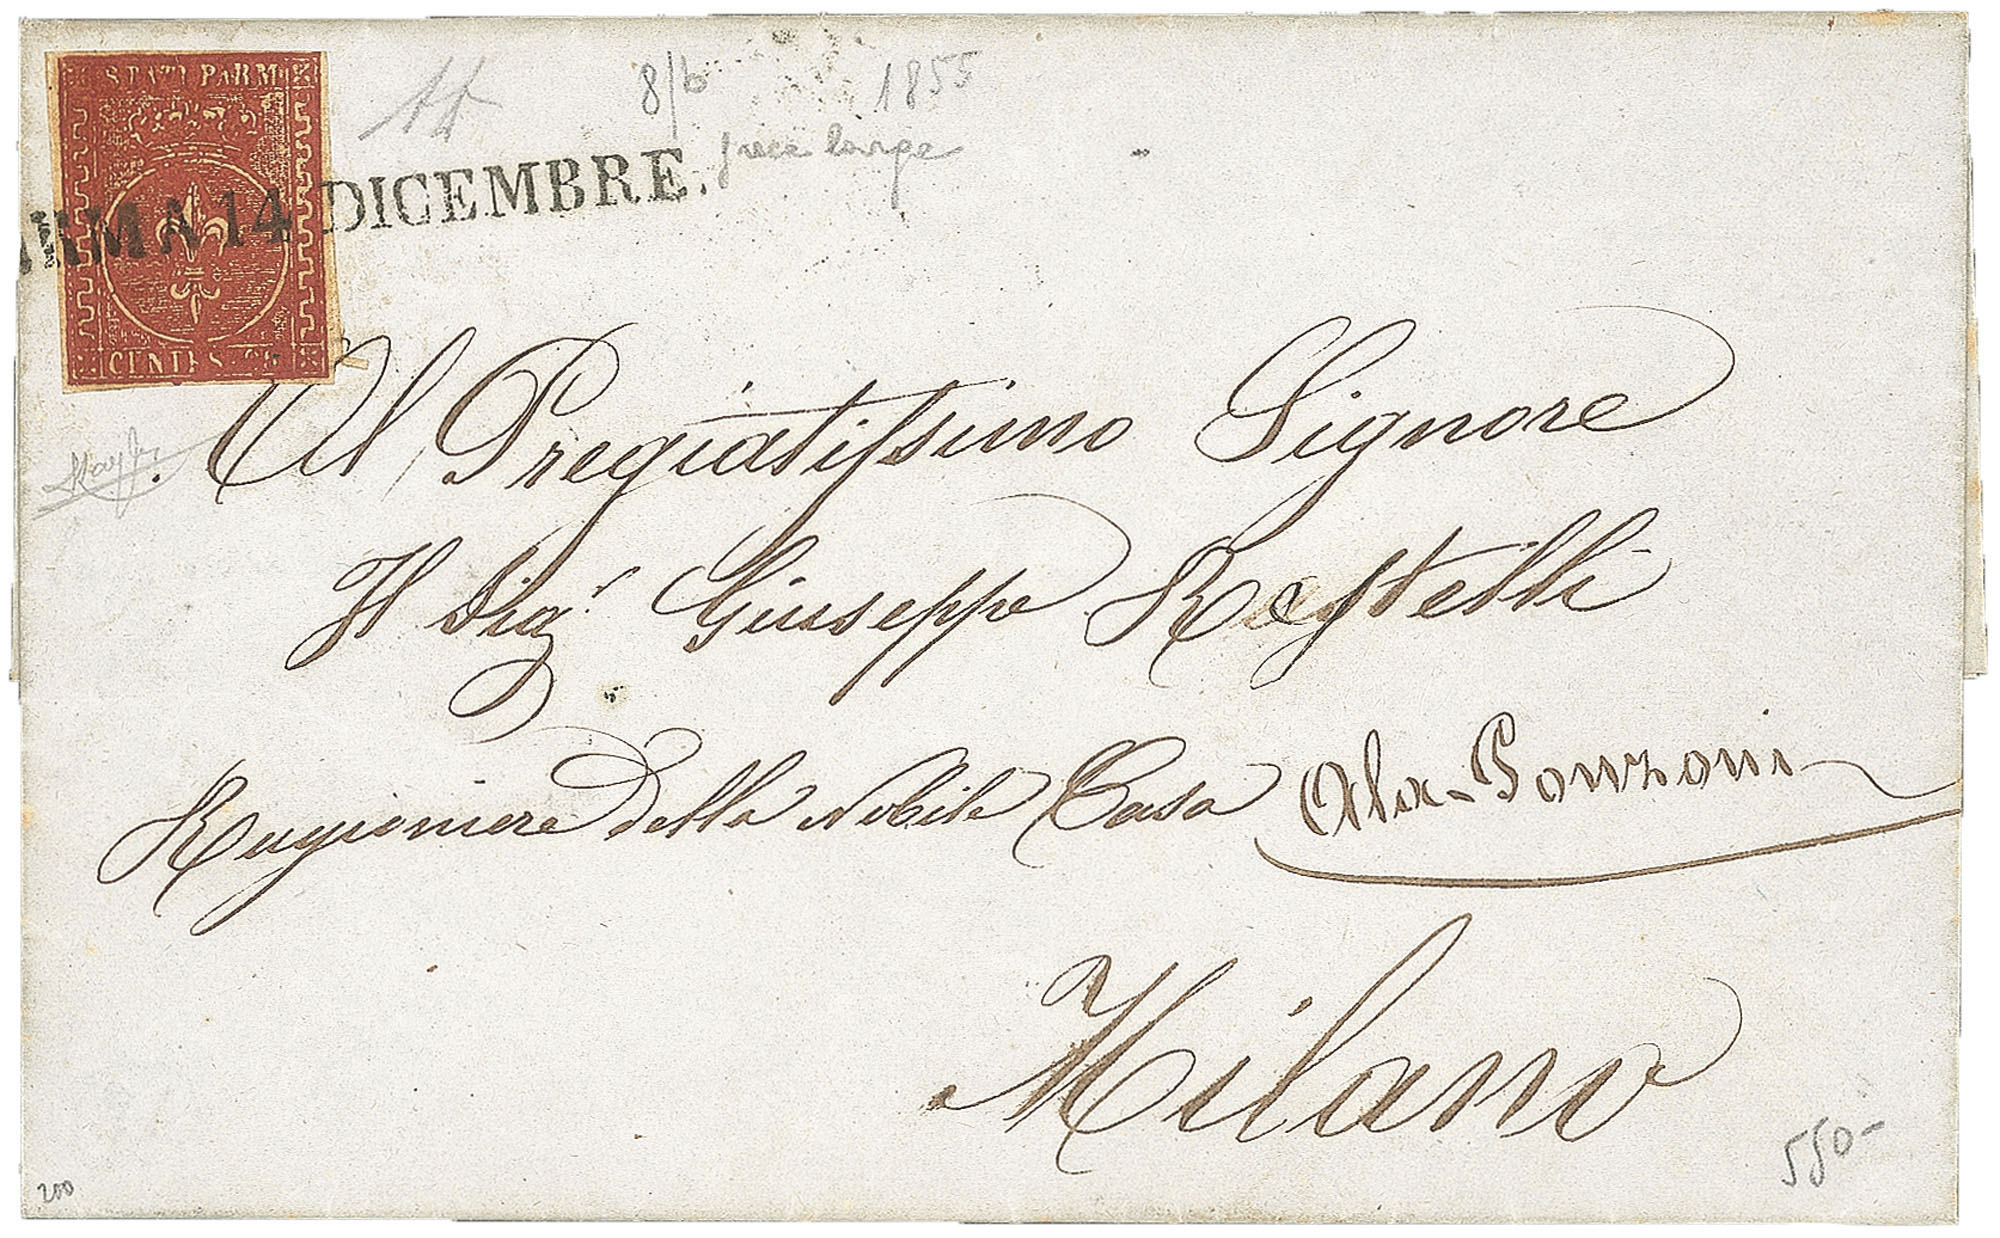 STATI PARM
CENTES 25
8/b
1855
grece large
RMA 14 DICEMBRE.
Al Pregiatissimo Signore
Il Sigr. Giuseppe Restelli
Ragioniere della Nobile Casa Ala-Ponzoni
Milano
550-
200